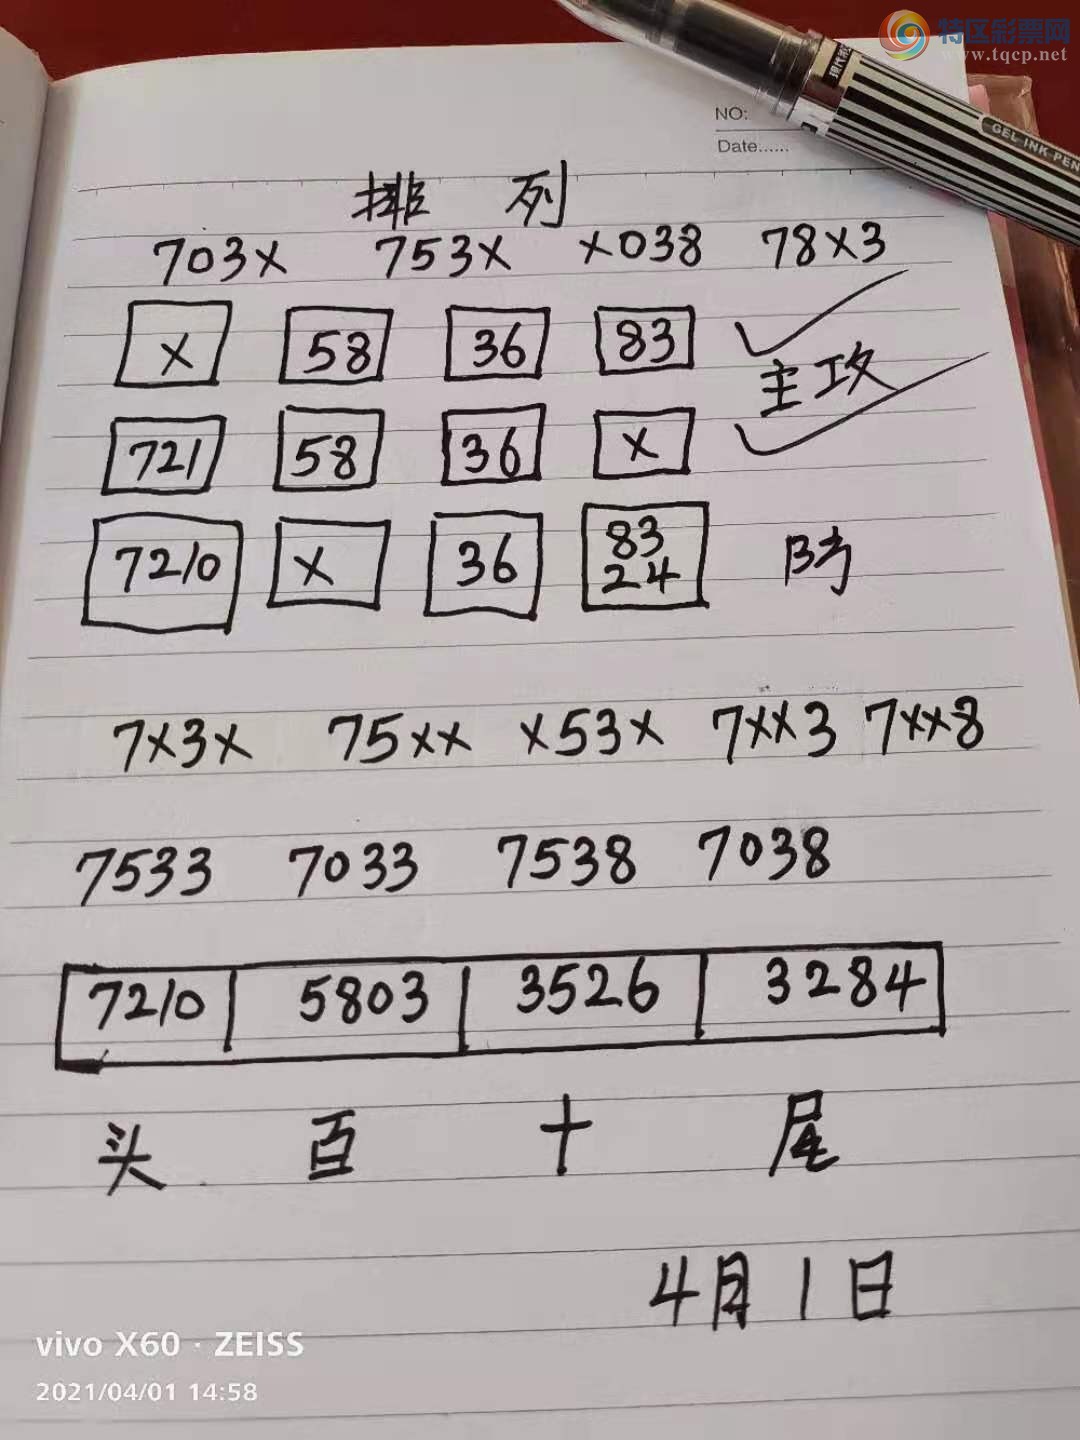 特区彩票网
www.tqcp.net
GEL INK PEN
NO:
Date......
排 列
703× 753× ×038 78×3
× 58 36 83
主攻
721 58 36 ×
7210 × 36 83
24
防
7×3× 75×× ×53× 7××3 7××8
7533 7033 7538 7038
7210 5803 3526 3284
头 百 十 尾
4月1日
vivo X60 · ZEISS
2021/04/01 14:58